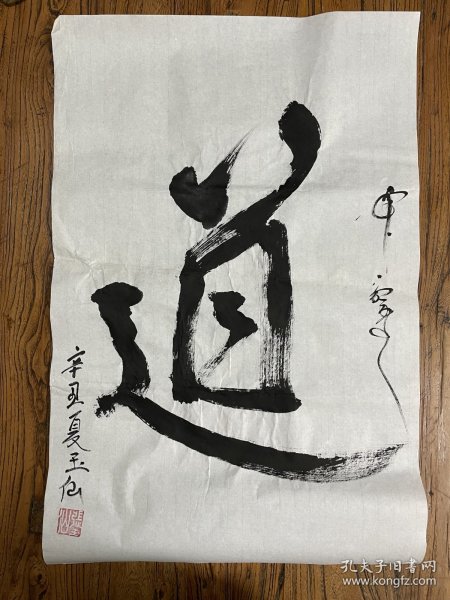 道
辛丑夏玉仙
孔夫子旧书网
www.kongfz.com